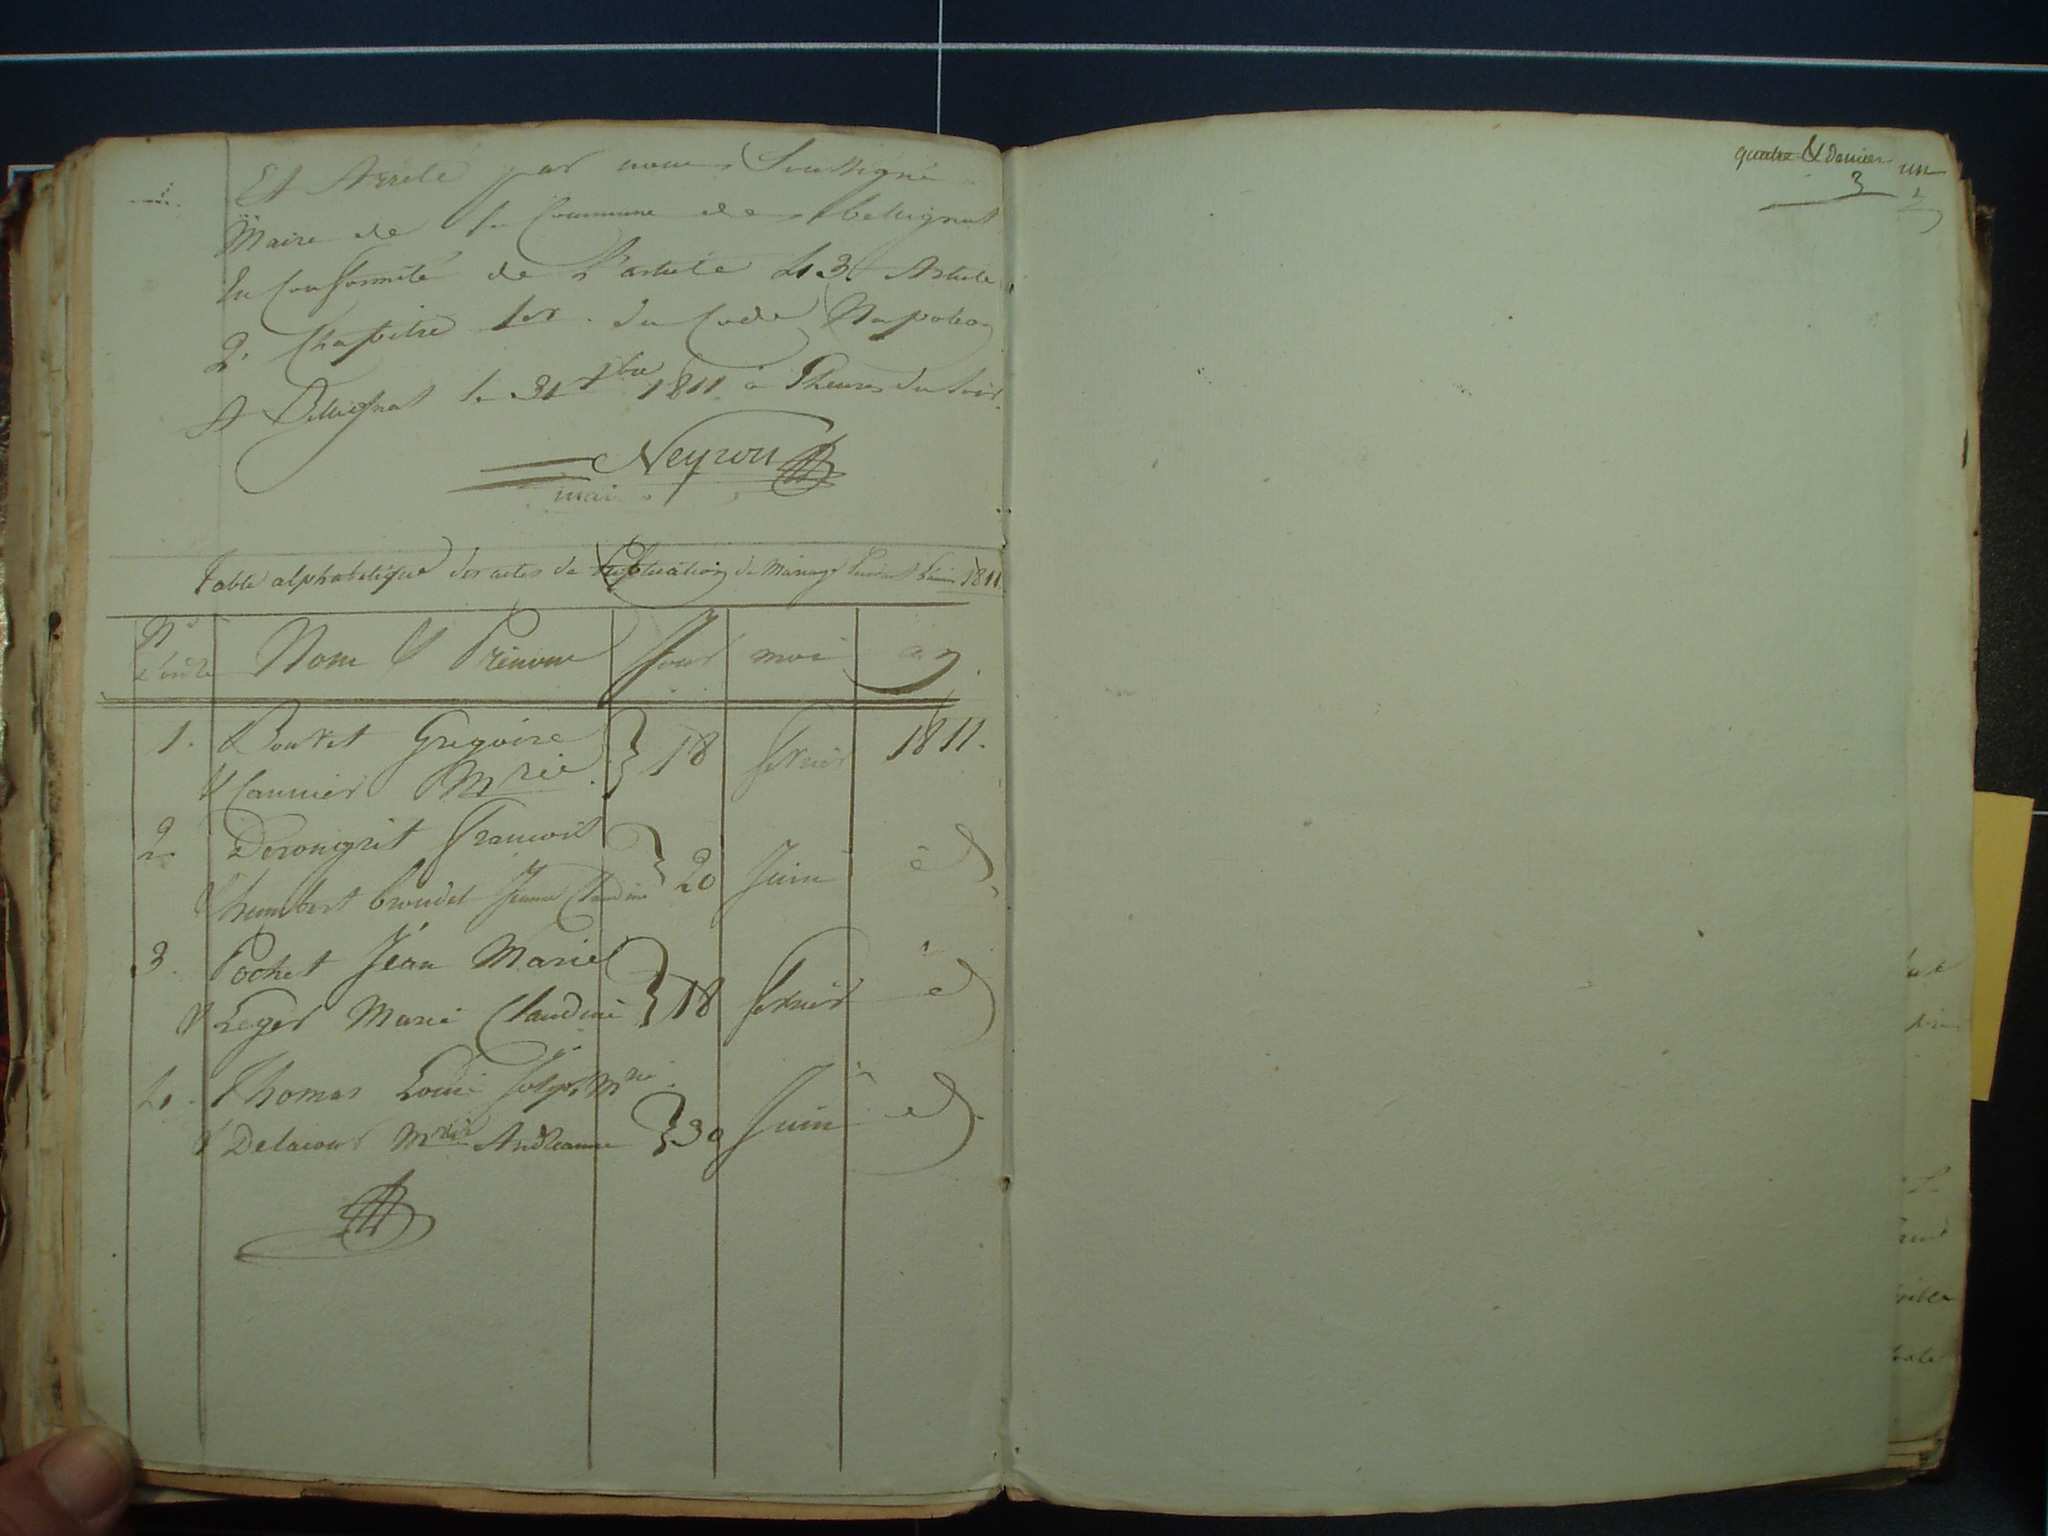 Et Arrêté par nous Soussigné
Maire de la Commune de bellignat
En Conformité de L'article 43. Article
2. Chapitre 1er. du Code Napoleon
A Bellignat le 31 Xbre 1811 à heures du Soir.
Neyrou
maire
Table alphabetique des actes de Publication de Mariage Pendant L'année 1811
No d'ordre Nom & Prénom Jour moi an.
1. Bouvet Gregoire } 18 fevrier 1811.
& Caunier Mrie
2. Derongrit Francois } 20 Juin id
& humbert brondet Jeanne Claudine
3. Pochet Jéan Marie } 18 fevrier id
& Leger Marie Claudine
4. Thomas Louis Joseph Mrie } 30 Juin id
& Delacour Mrie Andréanne
quatre & dernier
3
un